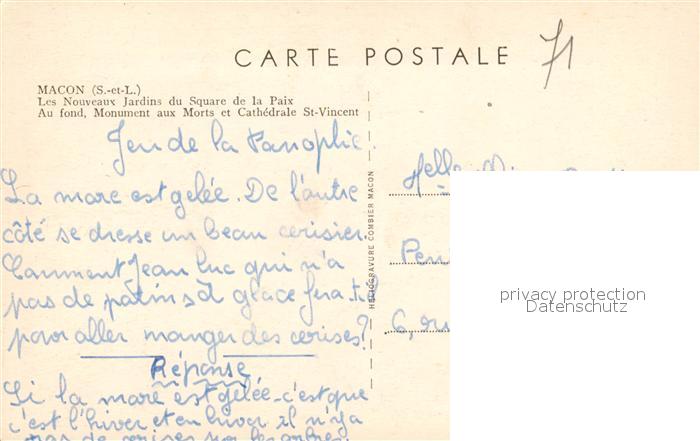 CARTE POSTALE
71
MACON (S.-et-L.)
Les Nouveaux Jardins du Square de la Paix
Au fond, Monument aux Morts et Cathédrale St-Vincent
Jeu de la Panoplie.
La mare est gelée. De l'autre
côté se dresse un beau cerisier.
Comment Jean Luc qui n'a
pas de patins à glace fera-t-il
pour aller manger des cerises?
Réponse
Si la mare est gelée - c'est que
c'est l'hiver et en hiver il n'y a
pas de cerises sur les arbres.
HELIOGRAVURE COMBIER MACON
Melle
6, rue
privacy protection
Datenschutz